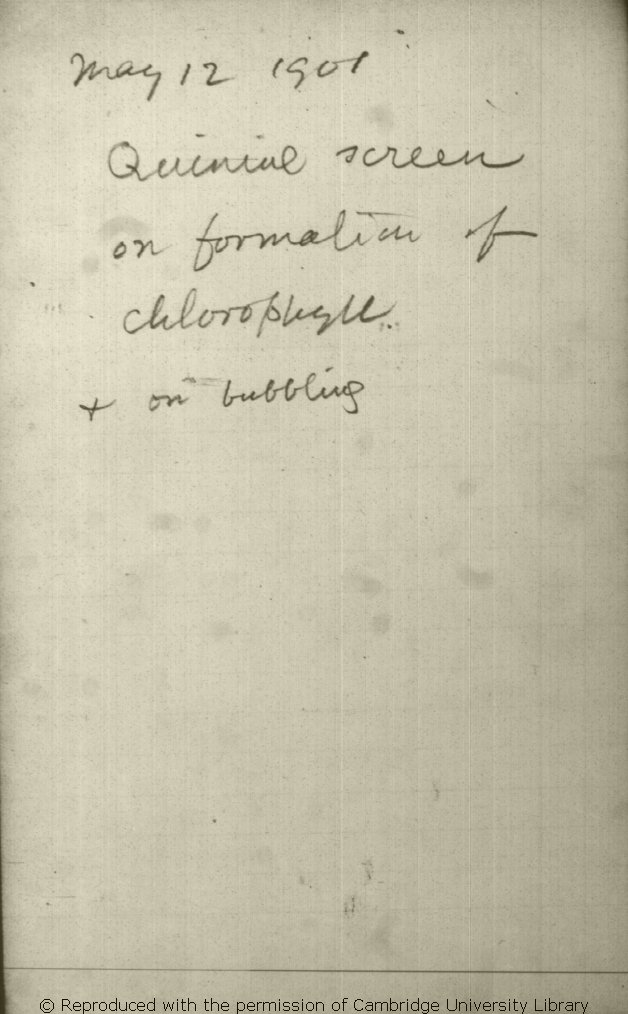 May 12 1901
Quinine screen
on formation of
chlorophyll.
+ on bubbling
© Reproduced with the permission of Cambridge University Library